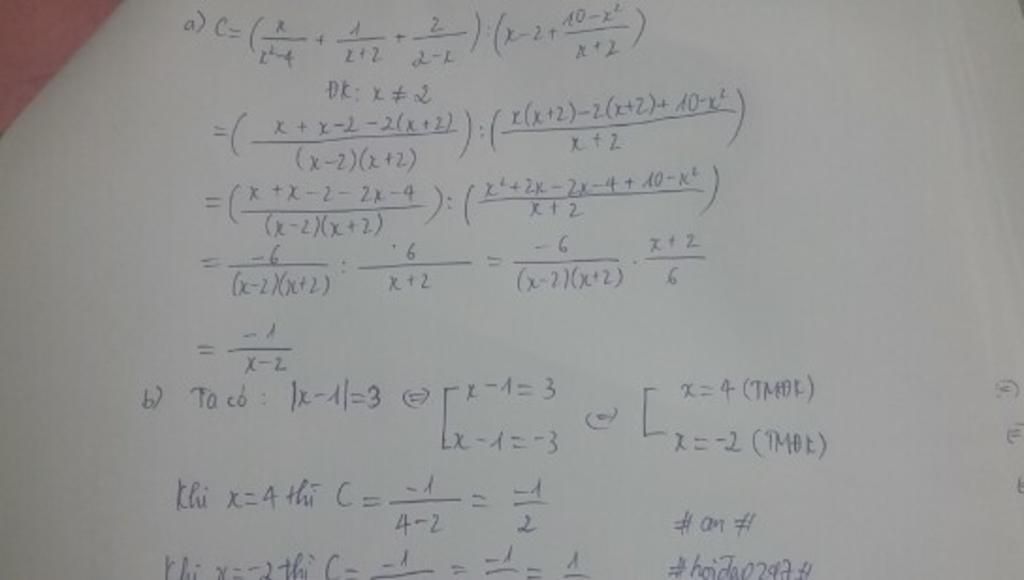 a) C = (x/(x²-4) + 1/(x+2) + 2/(2-x)) : (x-2 + (10-x²)/(x+2))
ĐK: x ≠ 2
= ((x + x-2 - 2(x+2))/((x-2)(x+2))) : ((x(x+2) - 2(x+2) + 10-x²)/(x+2))
= ((x + x - 2 - 2x - 4)/((x-2)(x+2))) : ((x² + 2x - 2x - 4 + 10 - x²)/(x+2))
= -6/((x-2)(x+2)) : 6/(x+2) = -6/((x-2)(x+2)) . (x+2)/6
= -1/(x-2)
b) Ta có : |x-1|=3 ⇔ [ x-1=3 ⇔ [ x=4 (TMĐK)
x-1=-3 x=-2 (TMĐK)
Khi x=4 thì C = -1/(4-2) = -1/2
# an #
Khi x=-2 thì C = -1 = -1 = 1
#hoidap247#